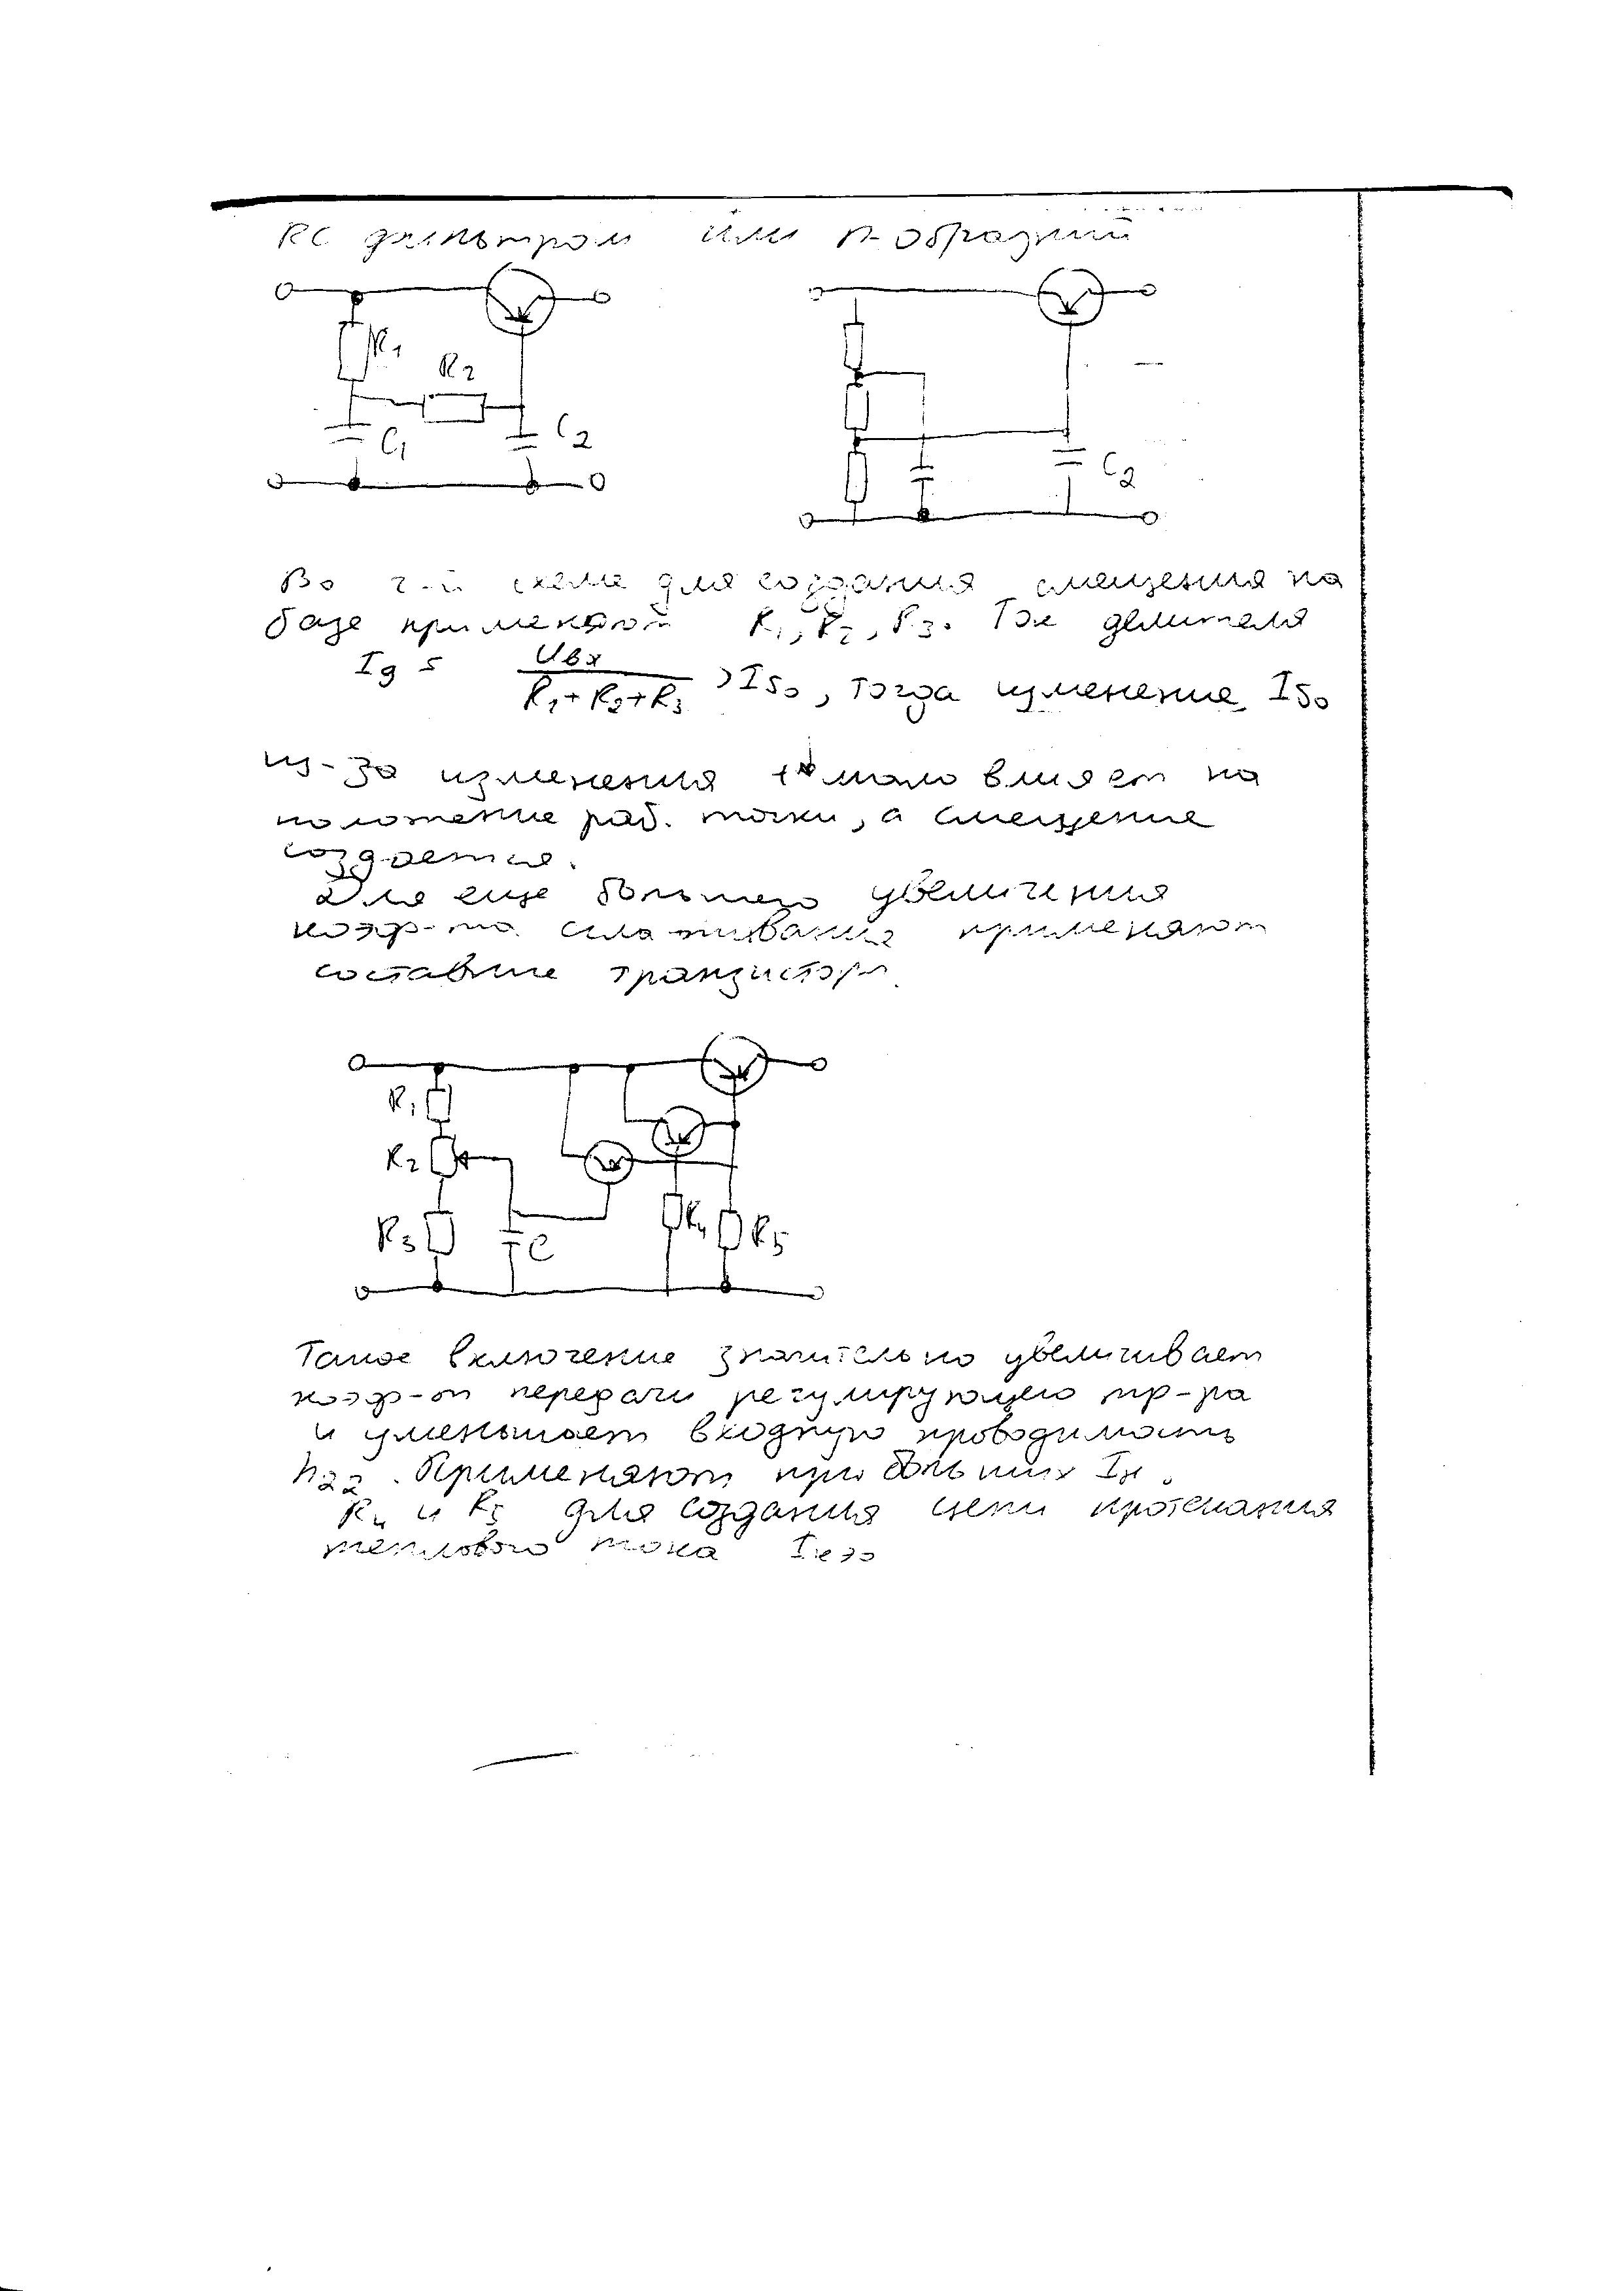 RC фильтром или П-образный
R₁
R₂
C₁
C₂
C₂
Во 2-й схеме для создания смещения на
базе применяют R₁, R₂, R₃. Ток делителя
Iд = Uвх / R₁+R₂+R₃ > Iб₀, тогда изменение Iб₀
из-за изменения t° мало влияет на
положение раб. точки, а смещение
создается.
Для еще большего увеличения
коэф-та сглаживания применяют
составные транзисторы
R₁
R₂
R₃
C
R₄
R₅
Такое включение значительно увеличивает
коэф-т передачи регулирующего тр-ра
и уменьшает входную проводимость
h₂₂. Применяют при больших Iн.
R₄ и R₅ для создания цепи протекания
теплового тока Iкэо